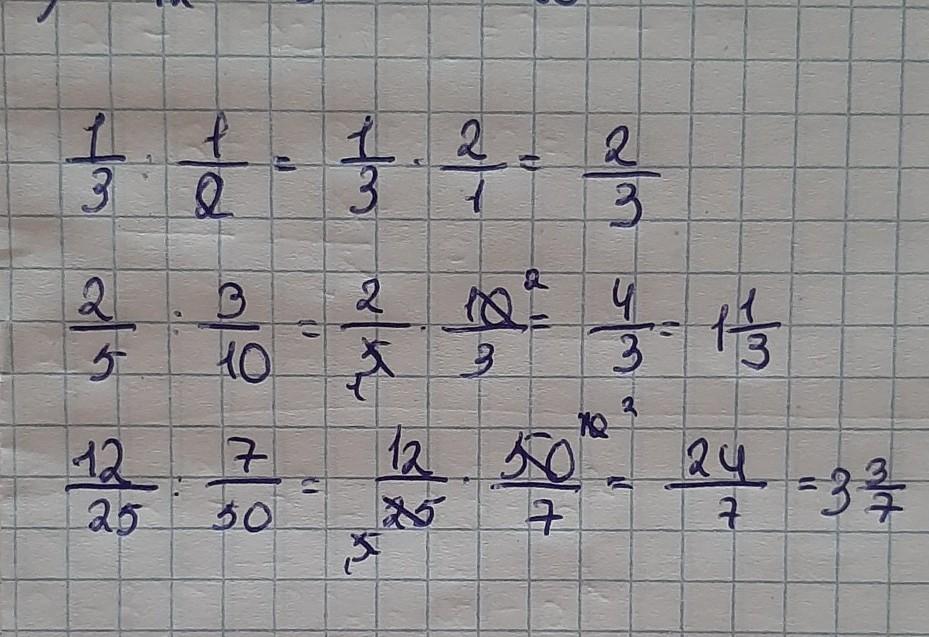 1/3 : 1/2 = 1/3 · 2/1 = 2/3
2/5 : 3/10 = 2/5 1 · 10/3 2 = 4/3 = 1 1/3
12/25 : 7/50 = 12/25 5 1 · 50/7 10 2 = 24/7 = 3 3/7